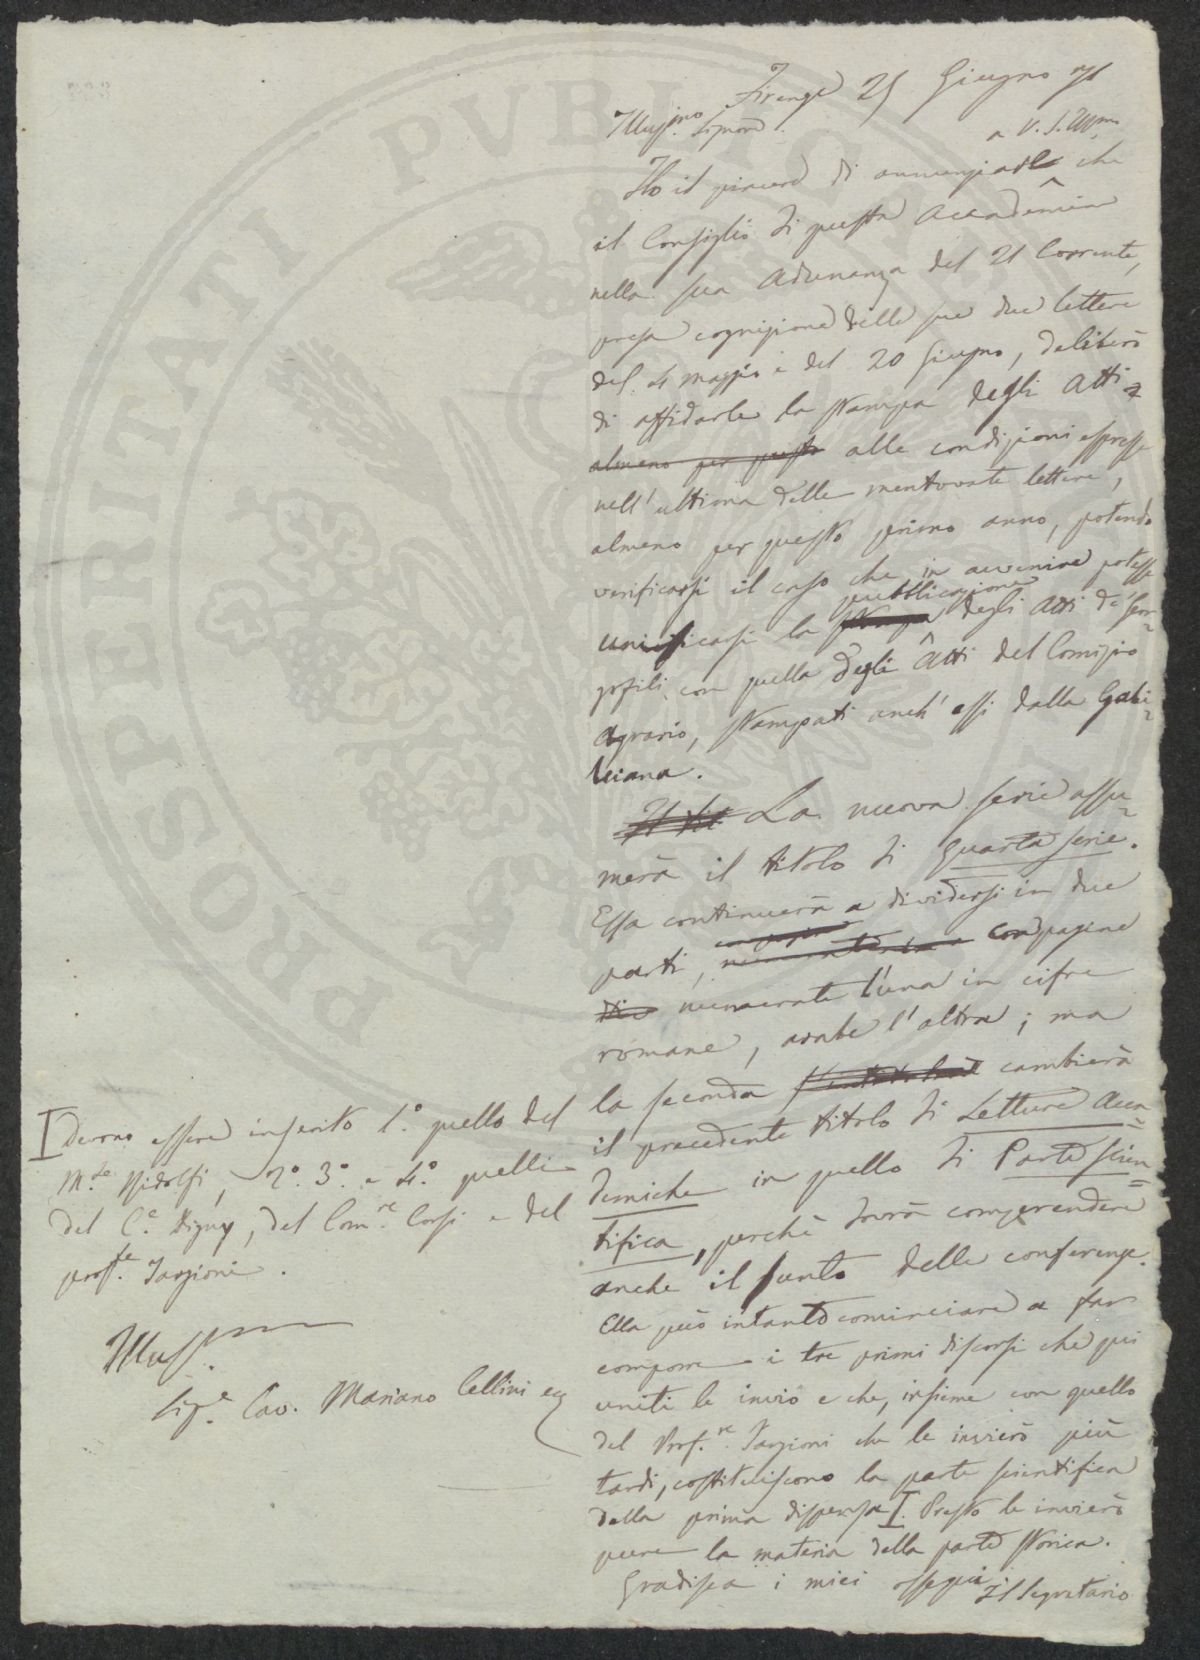 Firenze 25 Giugno 71
Illus.mo Signore
a V. S. Illma
Ho il piacere di annunziarle che
il Consiglio di questa Accademia
nella sua Adunanza del 21 Corrente,
presa cognizione delle sue due lettere
del 4 maggio e del 20 Giugno, deliberò
di affidarle la stampa degli Atti
almeno per questo alle condizioni espresse
nell'ultima delle mentovate lettere,
almeno per questo primo anno, potendo
verificarsi il caso che in avvenire potesse
pubblicazione
unificarsi la stampa degli Atti de' Geor=
gofili con quella degli Atti del Comizio
Agrario, stampati anch'essi dalla Gali=
leiana.
Il tit La nuova serie assu=
merà il titolo di Quarta serie.
Essa continuerà a dividersi in due
parti, con pagine
numerate l'una in cifre
romane, arabe l'altra; ma
la seconda cambierà
il precedente titolo di Letture Acca=
demiche in quello di Parte scien=
tifica, perchè dovrà comprendere
anche il sunto delle conferenze.
Ella può intanto cominciare a far
comporre i tre primi discorsi che qui
uniti le invio e che, insieme con quello
del Prof.re Targioni che le invierò più
tardi, costituiscono la parte scientifica
della prima dispensa I. Presto le invierò
pure la materia della parte storica.
Gradisca i miei ossequi.
Il Segretario
I Devono essere inserito 1.° quello del
M.se Ridolfi, 2.° 3.° e 4.° quelli
del C.e Digny, del Com.re Corsi e del
prof.re Targioni.
Illus.mo
Sig.e Cav. Mariano Cellini ec
PROSPERITATI PVBLICAE